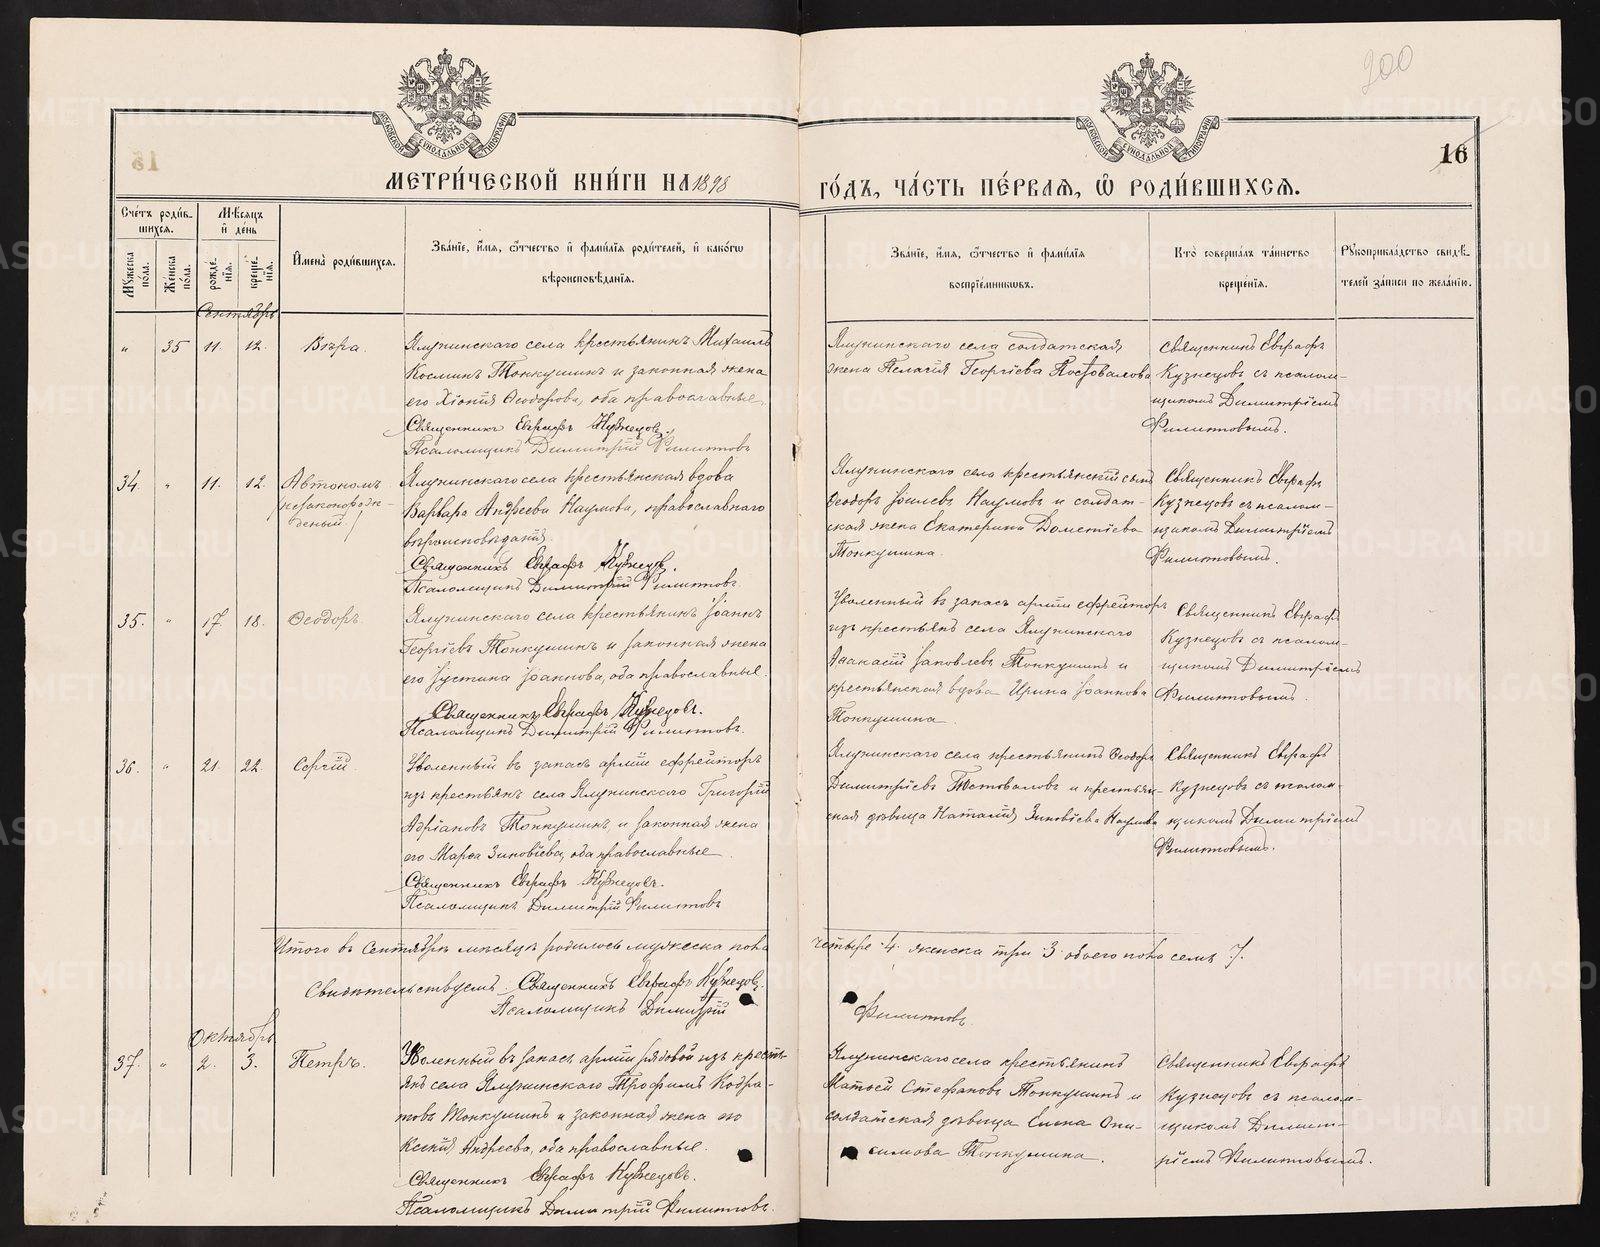 200
16
МЕТРИЧЕСКОЙ КНИГИ НА 1898
ГОДЪ, ЧАСТЬ ПЕРВАЯ, Ѡ РОДИВШИХСЯ.
Счетъ родив-
шихся.
Мужеска
пола.
Женска
пола.
Мѣсяцъ
и день
рожде-
нія.
креще-
нія.
Имена родившихся.
Званіе, имя, отчество и фамилія родителей, и какого
вѣроисповѣданія.
Званіе, имя, отчество и фамилія
воспріемниковъ.
Кто совершалъ таинство
крещенія.
Рукоприкладство свидѣ-
телей записи по желанію.
Сентябрь
" 35 11. 12. Вѣра.
Ялунинскаго села крестьянинъ Михаилъ
Косминъ Топкушинъ и законная жена
его Хіонія Ѳеодорова, оба православные.
Священникъ Евграфъ Кузнецовъ.
Псаломщикъ Димитрій Филитовъ
Ялунинскаго села солдатская
жена Пелагія Георгіева
Священникъ Евграфъ
Кузнецовъ съ псалом-
щикомъ Димитріемъ
Филитовымъ.
34. " 11. 12. Автономъ
незаконорож-
деный.
Ялунинскаго села крестьянская вдова
Варвара Андреева Наумова, православнаго
вѣроисповѣданія
Священникъ Евграфъ Кузнецовъ.
Псаломщикъ Димитрій Филитовъ.
Ялунинскаго села крестьянскій сынъ
Ѳеодоръ Наумовъ и солдат-
ская жена Екатерина Дометіева
Топкушина.
Священникъ Евграфъ
Кузнецовъ съ псалом-
щикомъ Димитріемъ
Филитовымъ.
35. " 17. 18. Ѳеодоръ.
Ялунинскаго села крестьянинъ Іоаннъ
Георгіевъ Топкушинъ и законная жена
его Іустина Іоаннова, оба православные.
Священникъ Евграфъ Кузнецовъ.
Псаломщикъ Димитрій Филитовъ.
Уволенный въ запасъ арміи ефрейторъ
изъ крестьянъ села Ялунинскаго
Аѳанасій Іаковлевъ Топкушинъ и
крестьянская вдова Ирина Іоаннова
Топкушина.
Священникъ Евграфъ
Кузнецовъ съ псалом-
щикомъ Димитріемъ
Филитовымъ.
36. " 21. 22. Сергій.
Уволенный въ запасъ арміи ефрейторъ
изъ крестьянъ села Ялунинскаго Григорій
Адріановъ Топкушинъ, и законная жена
его Марѳа Зиновіева, оба православные.
Священникъ Евграфъ Кузнецовъ.
Псаломщикъ Димитрій Филитовъ
Ялунинскаго села крестьянинъ Ѳеодоръ
Димитріевъ и крестьян-
ская дѣвица Наталія Зиновіева Наумова
Священникъ Евграфъ
Кузнецовъ съ псалом-
щикомъ Димитріемъ
Филитовымъ.
Итого въ Сентябрѣ мѣсяцѣ родилось мужеска пола
четыре 4. женска три 3. обоего пола семь 7.
Свидѣтельствуемъ: Священникъ Евграфъ Кузнецовъ.
Псаломщикъ Димитрій
Филитовъ.
Октябрь
37. " 2. 3. Петръ.
Уволенный въ запасъ арміи рядовой изъ кресть-
янъ села Ялунинскаго Трофимъ Кодра-
товъ Топкушинъ и законная жена его
Ксенія Андреева, оба православные.
Священникъ Евграфъ Кузнецовъ.
Псаломщикъ Димитрій Филитовъ.
Ялунинскаго села крестьянинъ
Матѳей Стефановъ Топкушинъ и
солдатская дѣвица Елена Они-
симова Топкушина.
Священникъ Евграфъ
Кузнецовъ съ псалом-
щикомъ Димит-
ріемъ Филитовымъ.
METRIKI.GASO-URAL.RU